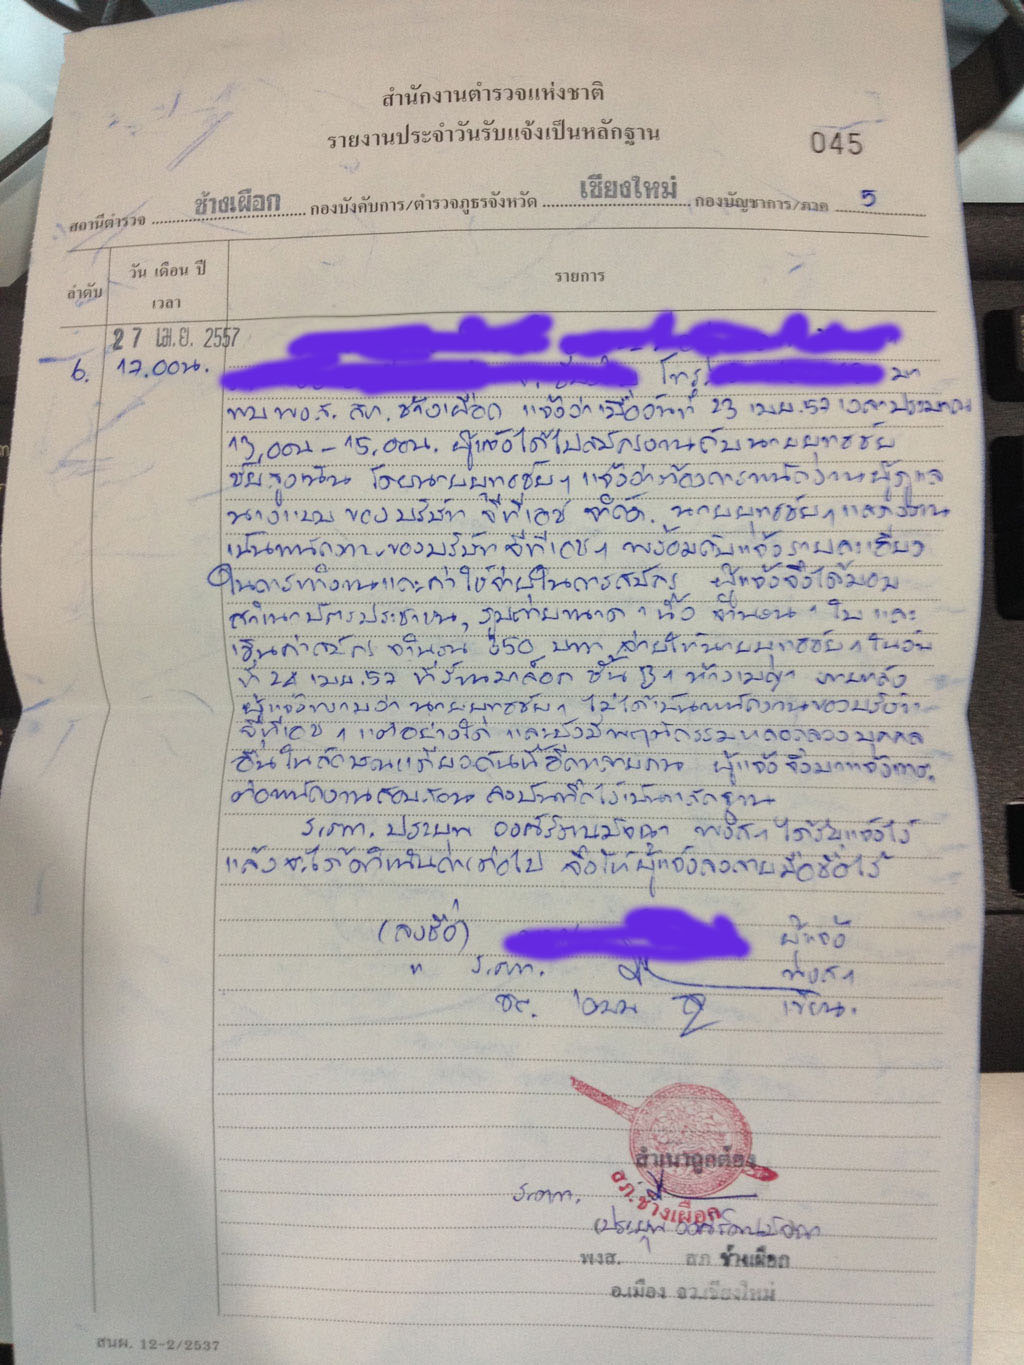 สำนักงานตำรวจแห่งชาติ
รายงานประจำวันรับแจ้งเป็นหลักฐาน
045
สถานีตำรวจ ช้างเผือก กองบังคับการ/ตำรวจภูธรจังหวัด เชียงใหม่ กองบัญชาการ/ภาค 5
ลำดับ
วัน เดือน ปี
เวลา
รายการ
27 เม.ย. 2557
6. 17.00น. โทร มา
พบ พงส. สภ. ช้างเผือก แจ้งว่าเมื่อวันที่ 23 เม.ย.57 เวลาประมาณ
13.00น - 15.00น. ผู้แจ้งได้ไปสมัครงานกับนายยุทธชัย
โดยนายยุทธชัยฯ แจ้งว่าต้องการพนักงานผู้ดูแล
นางแบบ ของบริษัท จีทีเอช จำกัด. นายยุทธชัยฯ
เป็นพนักงานของบริษัท จีทีเอชฯ พร้อมกับแจ้งรายละเอียด
ในการทำงานและค่าใช้จ่ายในการสมัคร ผู้แจ้งจึงได้มอบ
สำเนาบัตรประชาชน, รูปถ่ายขนาด 1 นิ้ว จำนวน 1 ใบ และ
เงินค่าสมัคร จำนวน บาท ให้นายยุทธชัยฯ ในวัน
ที่ 24 เม.ย.57 ที่ร้าน ชั้น ห้าง ภายหลัง
ผู้แจ้งทราบว่า นายยุทธชัยฯ ไม่ได้เป็นพนักงานของบริษัท
จีทีเอชฯ แต่อย่างใด และยังมีพฤติกรรมหลอกลวงบุคคล
อื่นในลักษณะเดียวกันนี้อีกหลายคน ผู้แจ้งจึงมาแจ้ง
ต่อพนักงานสอบสวน ลงบันทึกไว้เป็นหลักฐาน
ร.ต.ท. พงสฯ ได้รับแจ้งไว้
แล้วจะได้ดำเนินการต่อไป จึงให้ผู้แจ้งลงลายมือชื่อไว้
(ลงชื่อ) ผู้แจ้ง
" ร.ต.ท. พงสฯ
เขียน.
สำเนาถูกต้อง
สภ.ช้างเผือก
ร.ต.ท.
พงส. สภ ช้างเผือก
อ.เมือง จว.เชียงใหม่
สนผ. 12-2/2537